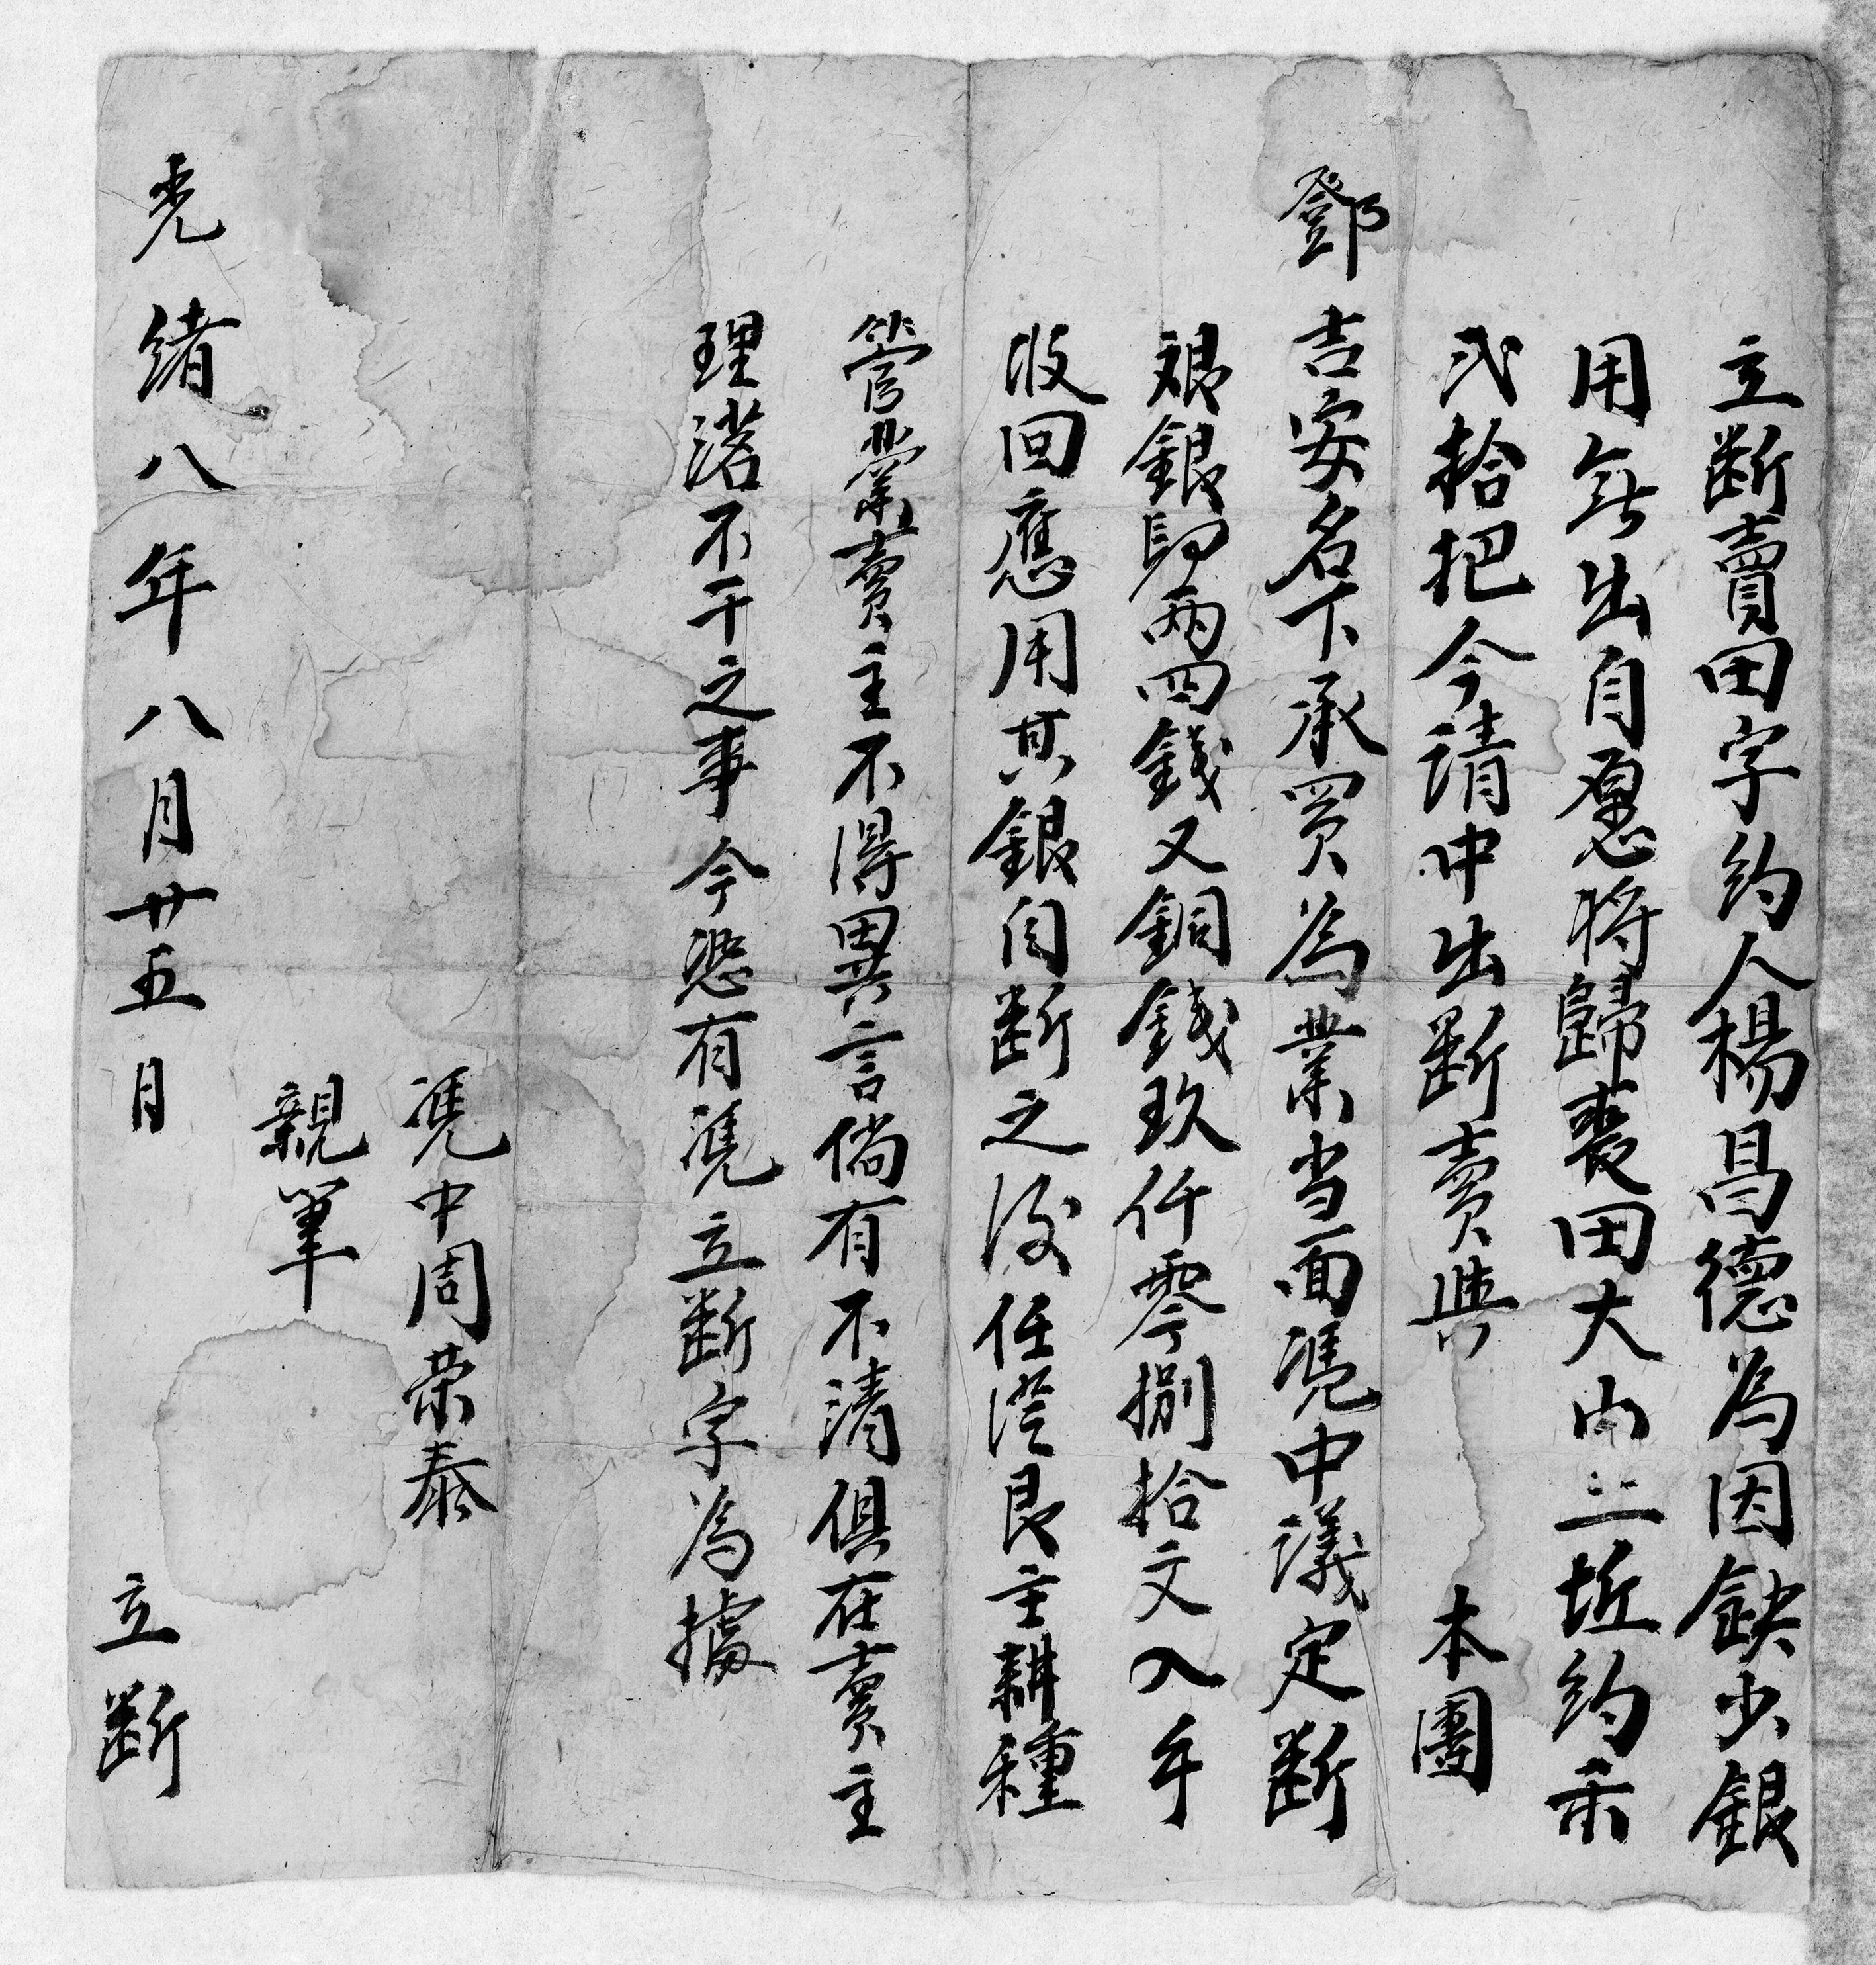 立断賣田字約人楊昌德為因缺少銀
用無出自愿將歸喪田大小二坵約禾
弍拾把今請中出断賣與 本團
鄧吉安名下承買為業当面凴中議定断
銀歸兩四錢又銅錢玖仟零捌拾文入手
收回應用其銀自断之後任從艮主耕種
管業賣主不得異言倘有不清俱在賣主
理落不干之事今恐有凴立断字為據
凴中周荣泰
親筆
光緒八年八月廿五日 立断